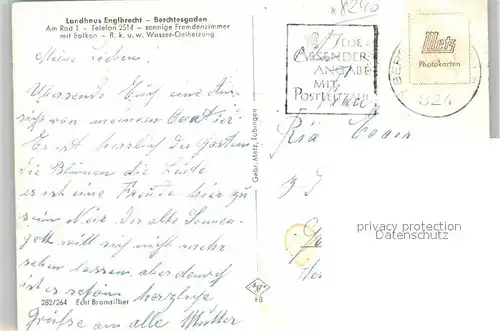 x8240
Landhaus Englbrecht — Berchtesgaden
Am Rad 1 — Telefon 2514 — sonnige Fremdenzimmer
mit Balkon — fl. k. u. w. Wasser-Oelheizung
Meine Lieben!
Übersende Euch eine An-
sicht von meinem Quatier!
Es ist herrlich der Garten
die Blumen die Leute
es ist eine Freude hier zu
sein. Nur der alte Sonnen-
gott will sich nicht mehr
sehen lassen, aber dennoch
ist es schön herzliche
Grüße an alle Mutter
282/264 Echt Bromsilber
Gebr. Metz, Tübingen
Agfa
FB
JEDE
ABSENDER-
ANGABE
MIT
POSTLEITZAHL
BER
824
Metz
Photokarten
Ria
privacy protection
Datenschutz